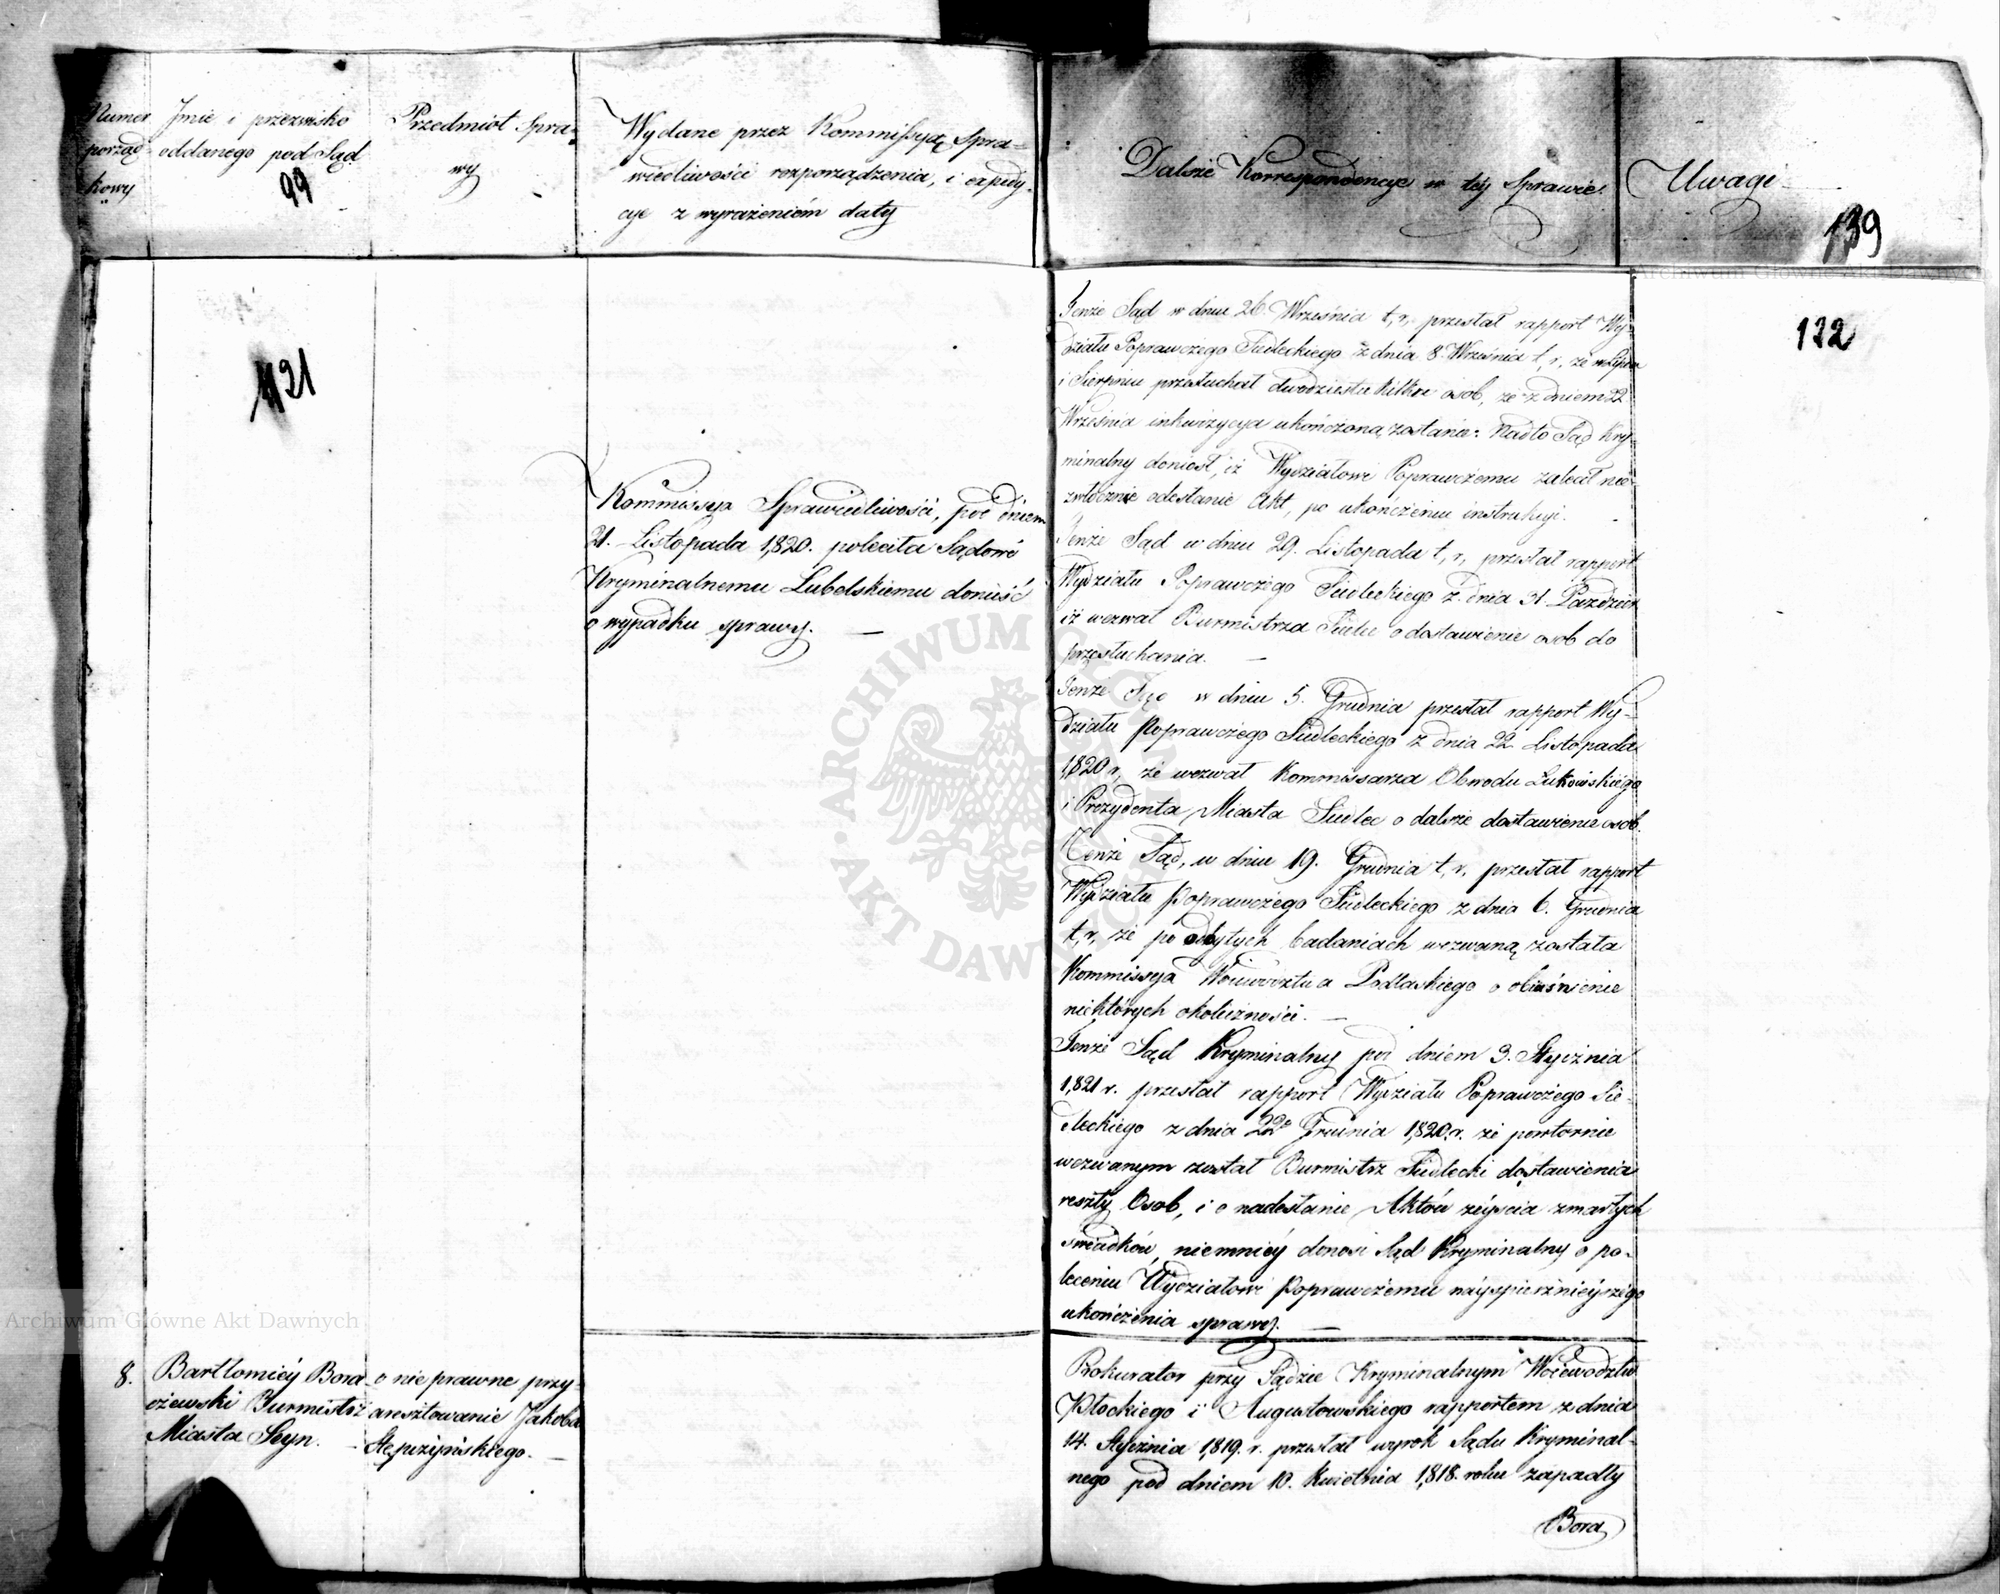 Numer
porząd-
kowy
Jmie i przezwisko
oddanego pod Sąd
99
Przedmiot Spra-
wy
Wydane przez Kommissyą Spra-
wiedliwości rozporządzenia, i expedy-
cye z wyrażeniem daty
Dalsze Korrespondencye w téy Sprawie.
Uwagi
139
121
132
Kommissya Sprawiedliwości, pod dniem
21. Listopada 1,820. poleciła Sądowi
Kryminalnemu Lubelskiemu donieść
o wypadku sprawy. —
Tenże Sąd w dniu 26. Września t, r, przesłał rapport Wy-
działu Poprawczego Siedleckiego z dnia 8. Września t, r, że w Lipcu
i Sierpniu przesłuchał dwudziestu kilku osób, że z dniem 22
Września inkwizycya ukończoną zostanie: Nadto Sąd Kry-
minalny doniosł, iż Wydziałowi Poprawczemu zalecał nie-
zwłocznie odesłanie Akt, po ukończeniu instrukcyi.
Tenże Sąd w dniu 29. Listopada t, r, przesłał rapport
Wydziału Poprawczego Siedleckiego z dnia 31. Paździer
iż wezwał Burmistrza Siedlec o dostawienie osób do
przesłuchania. —
Tenże Sąd w dniu 5. Grudnia przesłał rapport Wy-
działu Poprawczego Siedleckiego z dnia 22 Listopada
1,820 r, że wezwał Kommissarza Obwodu Łukowskiego
i Prezydenta Miasta Siedlec o dalsze dostawienie osób.
Tenże Sąd, w dniu 19. Grudnia t, r, przesłał rapport
Wydziału Poprawczego Siedleckiego z dnia 6. Grudnia
t, r, że po odbytych badaniach wezwaną została
Kommissya Woiewództwa Podlaskiego o obiaśnienie
niektórych okoliczności. —
Tenże Sąd Kryminalny pod dniem 3. Stycznia
1,821 r. przesłał rapport Wydziału Poprawczego Sie-
dleckiego z dnia 22go Grudnia 1,820. r. że powtornie
wezwanym został Burmistrz Siedlecki dostawienia
reszty Osób, i o nadesłanie Aktów zéyścia zmarłych
świadków, niemniéy donosi Sąd Kryminalny o po-
leceniu Wydziałowi Poprawczemu náyspieszniéyszégo
ukończenia sprawy. —
8.
Bartłomiéy Bora-
ożewski Burmistrz
Miasta Seyn. —
o nie prawne przy-
aresztowanie Jakoba
Stępczyńskiego. —
Prokurator przy Sądzie Kryminalnym Woiewództw
Płockiego i Augustowskiego rapportem z dnia
14. Stycznia 1,819. r. przesłał wyrok Sądu Kryminal-
nego pod dniem 10. Kwietnia 1,818. roku zapadły
Bora
ARCHIWUM GŁÓWNE AKT DAWNYCH
Archiwum Główne Akt Dawnych
Archiwum Główne Akt Dawnych